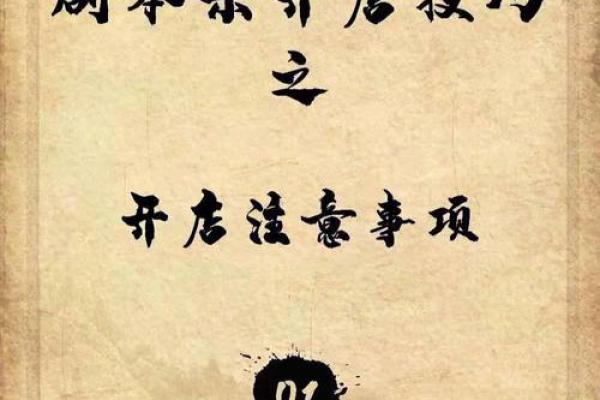 剧本杀开店技巧
之
开店注意事项
01